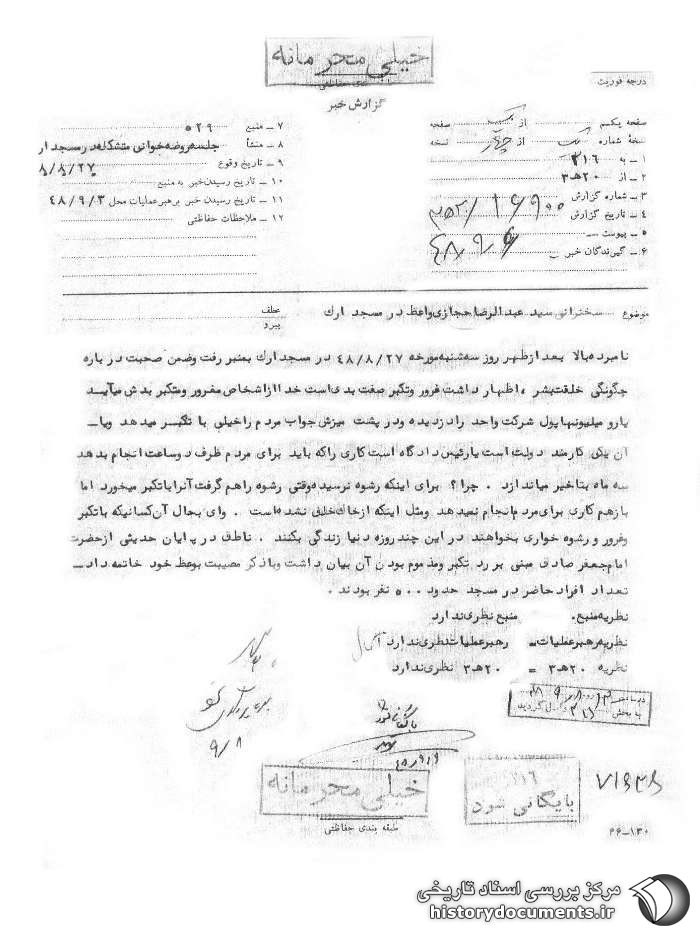 خیلی محرمانه
درجه فوریت
گزارش خبر
صفحه یکم از یک صفحه
نسخهٔ شماره یک از چهار نسخه
۱ ـ به ۳۱۶
۲ ـ از ۲۰هـ۳
۳ ـ شماره گزارش
۴ ـ تاریخ گزارش
۵ ـ پیوست ـ
۶ ـ گیرندگان خبر
۷ ـ منبع ۵۲۹
۸ ـ منشأ جلسه روضه‌خوانی متشکله در مسجد ار
۹ ـ تاریخ وقوع ۸/۸/۲۷
۱۰ ـ تاریخ رسیدن خبر به منبع
۱۱ ـ تاریخ رسیدن خبر برهبر عملیات محل ۴۸/۹/۳
۱۲ ـ ملاحظات حفاظتی
موضوع سخنرانی سید عبدالرضا حجازی واعظ در مسجد ارك
عطف
پیرو
نامبرده بالا بعد از ظهر روز سه‌شنبه مورخه ۴۸/۸/۲۷ در مسجد ارك بمنبر رفت وضمن صحبت در باره
چگونگی خلقت بشر ، اظهار داشت غرور وتکبر صفت بدی است خدا از اشخاص مغرور ومتکبر بدش میآیـد
یارو میلیونها پول شرکت واحد را دزدیده ودر پشت میزش جواب مردم را خیلی با تکبـر میدهد ویاـ
آن یکی کارمند دولت است یا رئیس دادگاه است کاری راکه باید برای مردم ظرف دوساعت انجام بدهد
سه ماه بتاخیر میاندازد . چرا؟ برای اینکه رشوه نرسیده وقتی رشوه راهم گرفت آنرا باتکبر میخورد اما
بازهم کاری برای مردم انجام نمیدهد ومثل اینکه از خاك خلق نشده است . وای بحال آن کسانیکه باتکبر
وغرور و رشوه خواری بخواهند در این چند روزه دنیا زندگی بکنند . ناطق در پایان حدیثی از حضرت
امام جعفر صادق مبنی بر رد تکبر ومذموم بودن آن بیان داشت وباذکر مصیبت بوعظ خود خاتمه دادـ
تعداد افراد حاضر در مسجد حدود ۵۰۰ نفر بودند .
نظریه منبع. منبع نظری ندارد
نظریه رهبر عملیات ـ رهبر عملیات نظری ندارد
نظریه ۲۰هـ۳ = ۲۰هـ۳ نظری ندارد
۹/۸
خیلی محرمانه
طبقه بندی حفاظتی
۳۱۶
بایگانی شود
۶۶-۱۳۰
مرکز بررسی اسناد تاریخی
historydocuments.ir